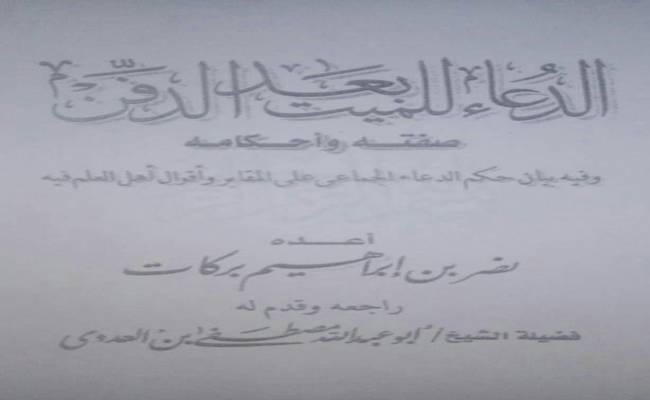 الدُّعَاءُ للميت بعد الدفن
صفته وأحكامه
وفيه بيان حكم الدعاء الجماعي على المقابر وأقوال أهل العلم فيه
أعده
نصر بن إبراهيم بركات
راجعه وقدم له
فضيلة الشيخ / أبو عبد الله مصطفى بن العدوى